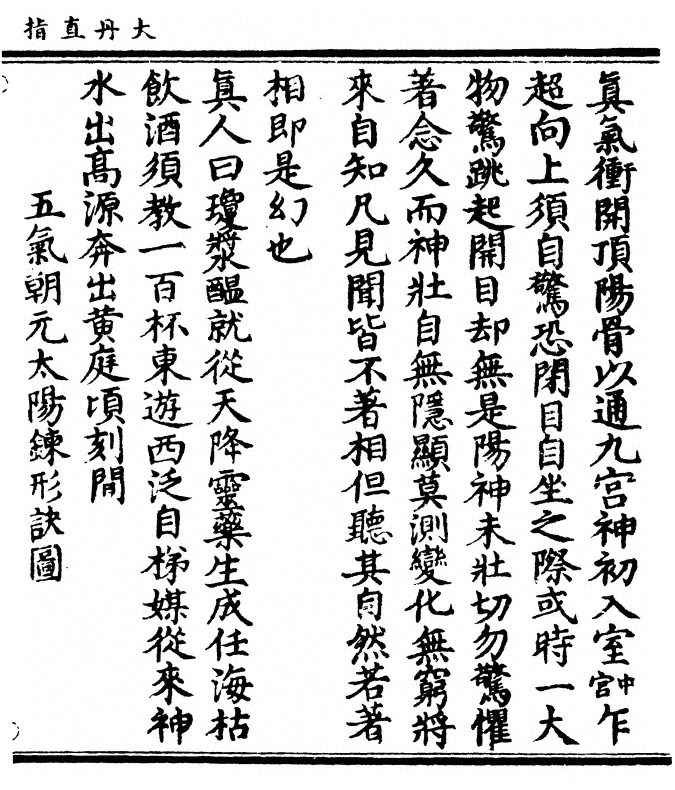 大丹直指
真氣衝開頂陽骨以通九宮神初入室中宮乍
超向上須自驚恐閉目自坐之際或時一大
物驚跳起開目却無是陽神未壯切勿驚懼
著念久而神壯自無隱顯莫測變化無窮將
來自知凡見聞皆不著相但聽其自然若著
相即是幻也
真人曰瓊漿醞就從天降靈藥生成任海枯
飲酒須教一百杯東遊西泛自梯媒從來神
水出高源奔出黄庭頃刻間
五氣朝元太陽鍊形訣圖